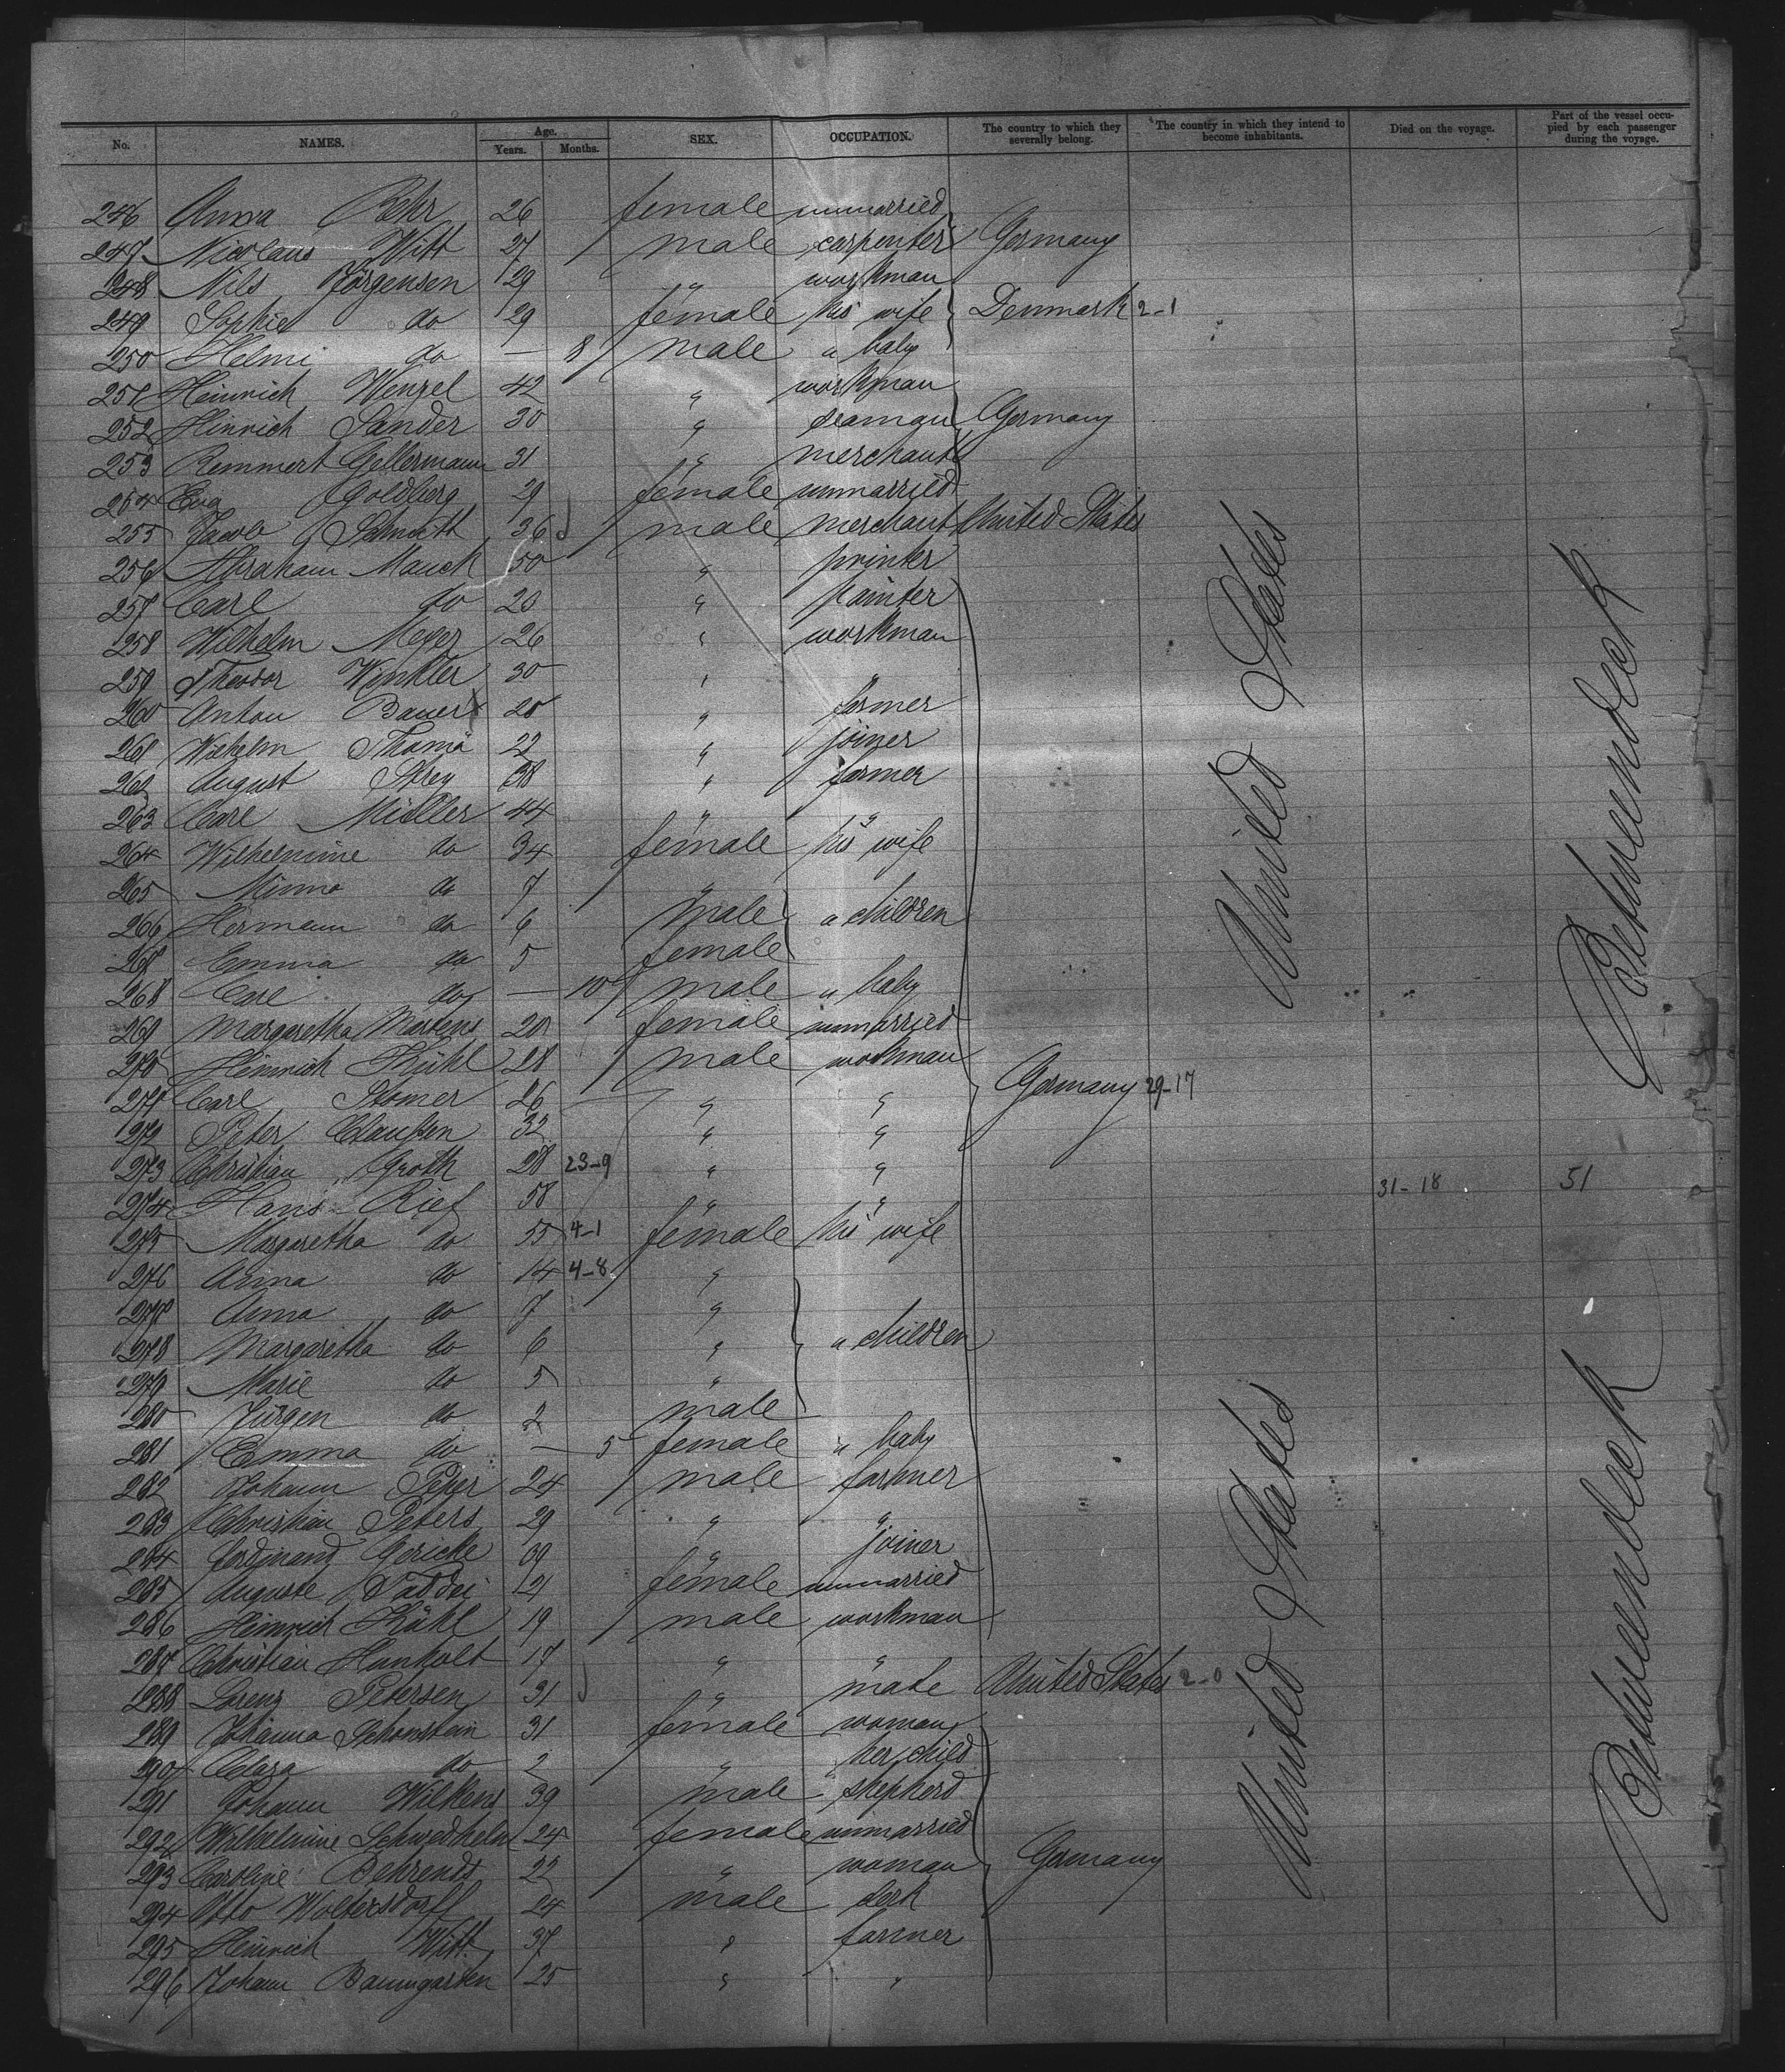 No. NAMES. Age. Years. Months. SEX. OCCUPATION. The country to which they severally belong. The country in which they intend to become inhabitants. Died on the voyage. Part of the vessel occupied by each passenger during the voyage.
246 Anna Behr 26 female unmarried
247 Nicolaus Witt 27 male carpenter Germany
248 Nils Jörgensen 29 " workman
249 Sophie do 29 female his wife Denmark 2-1
250 Helmi do — 8 male " baby
251 Heinrich Wenzel 42 " workman
252 Hinrich Sander 30 " seaman Germany
253 Remmert Gellermann 31 " merchant
254 Eva Goldberg 29 female unmarried
255 Jacob Schmitt 36 male merchant United States
256 Abraham Mauch 50 " printer
257 Carl do 20 " painter
258 Wilhelm Meyer 26 " workman
259 Theodor Winkler 30 " "
260 Anton Bauer 20 " farmer
261 Wilhelm Thomä 22 " joiner
262 August Strey 38 " farmer
263 Carl Müller 44 " "
264 Wilhelmine do 34 female his wife
265 Minna do 7 "
266 Hermann do 6 male " children
267 Emma do 5 female
268 Carl do — 10 male " baby
269 Margaretha Martens 20 female unmarried
270 Heinrich Kühl 28 male workman
271 Carl Stomer 26 " " Germany 29-17
272 Peter Claußen 32 " "
273 Christian Groth 28 23-9 " "
274 Hans Rief 58 " " 31-18 51
275 Margaretha do 55 4-1 female his wife
276 Anna do 14 4-8 "
277 Anna do 7 "
278 Margaretha do 6 " " children
279 Marie do 5 "
280 Jürgen do 2 male
281 Emma do — 5 female " baby
282 Johann 24 male farmer
283 Christian Peters 29 " "
284 Ferdinand Gericke 39 " joiner
285 Auguste 21 female unmarried
286 Heinrich Kühl 19 male workman
287 Christian Hanholt 17 " "
288 Lorenz Petersen 31 " mate United States 2-0
289 Johanna Schonstein 31 female woman
290 Clara do 2 " her child
291 Johann Wilkens 39 male shepherd
292 Wilhelmine Schwedhelm 24 female unmarried
293 Caroline Behrendt 22 " woman Germany
294 Otto Woltersdorff 24 male clerk
295 Heinrich Witt 37 " farmer
296 Johann Baumgarten 25 " "
United States
United States
Betweendeck
Betweendeck